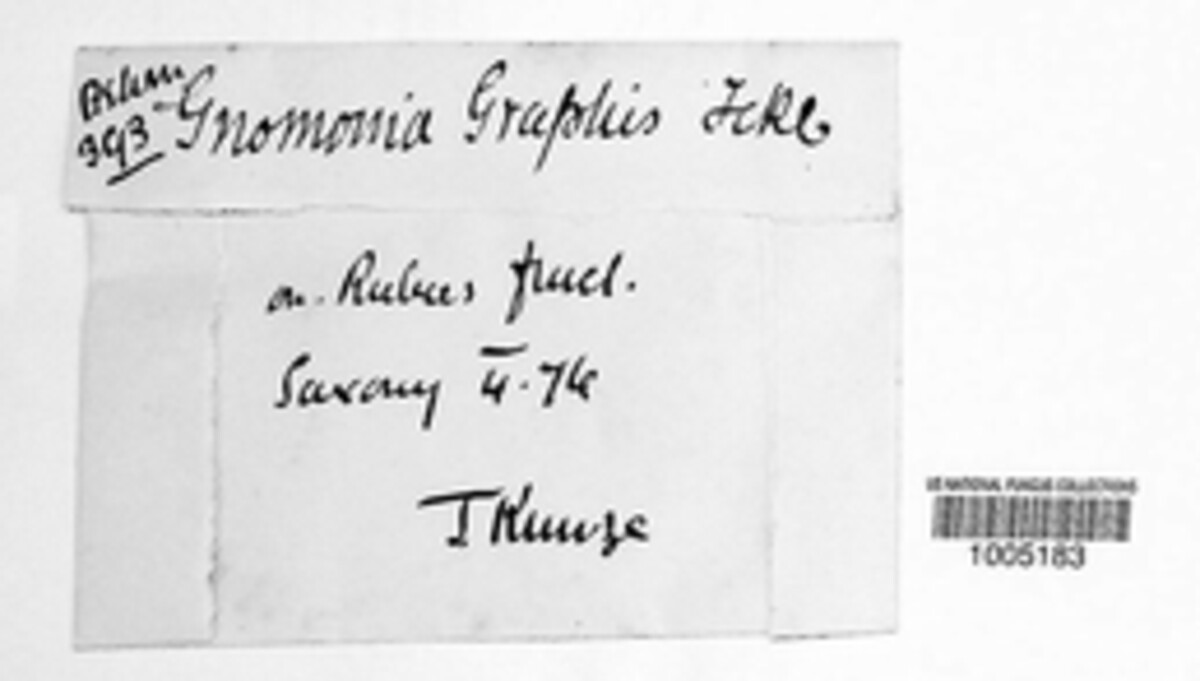 393
Gnomonia Graphis Fckl
on. Rubus fruct.
Saxony
J Kunze
US NATIONAL FUNGUS COLLECTIONS
1005183